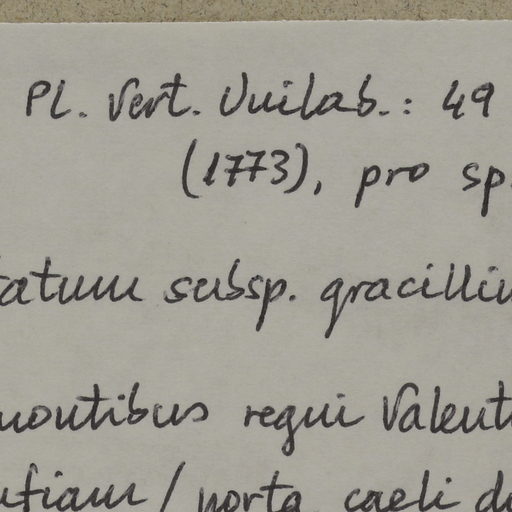 Pl. Vert. Vuilab.: 49
(1773), pro sp.
tatum subsp. gracilliu
montibus regni Valent
ntiam / porta caeli d